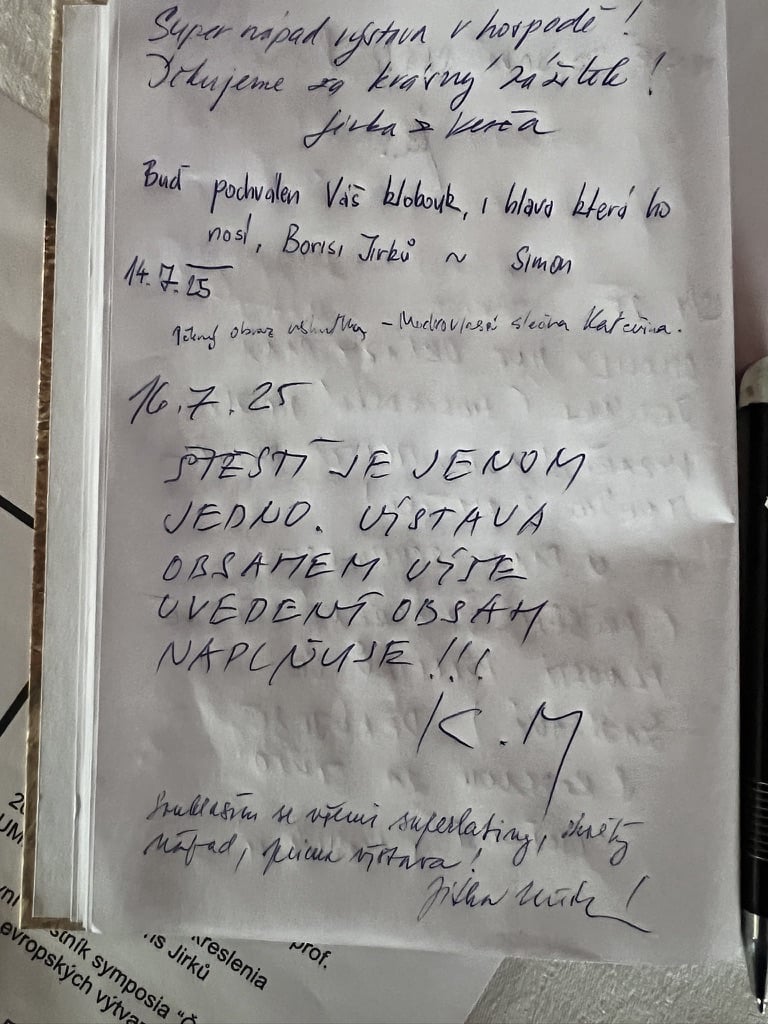 Super nápad výstava v hospodě!
Děkujeme za krásný zážitek!
Jirka z
Buď pochválen Váš klobouk, i hlava která ho
nosí, Borisi Jirků ~ Simon
14.7.25
Pěkný obraz – Modrovlasá slečna Kateřina.
16.7.25
ŠTĚSTÍ JE JENOM
JEDNO. VÝSTAVA
OBSAHEM VÝŠE
UVEDENÝ OBSAH
NAPLŇUJE!!!
K.M
Souhlasím se všemi superlativy, skvělý
nápad, výstava!
Jitka
prof.
kreslení
Jirků
stník symposia "Č
evropských výtva